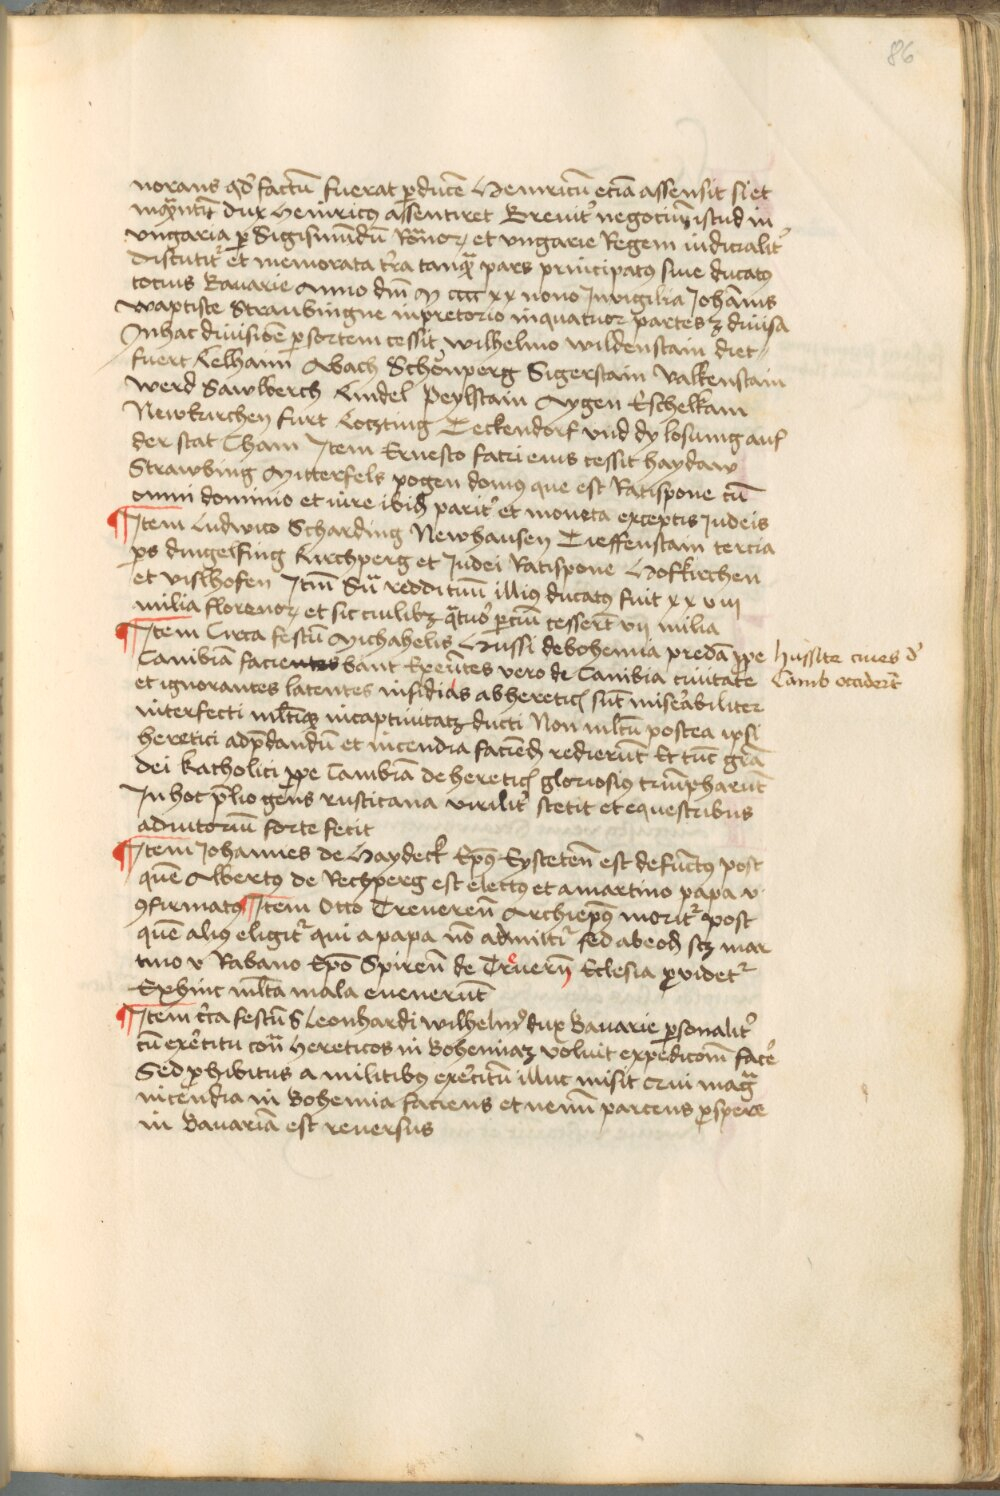 86
norans qd' factū fuerat p ducē Heinricū eciā assensit si et
inqͣntū dux Heinricꝯ assentiret Breuit' negotiūistud in
vngaria p Sigismūdū Rōnoꝝ et vngarie Regem iudicialit'
discutitͬ et memorata t'ra tanqͣ pars principatꝯ siue ducatꝯ
totius Bauarie Anno dnī M cccc xx nono In vigilia Johānis
waptiste Straubingne in pretorio in quatuor partes ꝫ diuisa
In hac diuisiōe p sortem cessit Wilhelmo Wildenstain diet
furt Kelhaim Abach Schönperg Sigerstain Valkenstain
Werd Sawlberch Lindel Peylstain Aygen Eschelkam
Newkirchen furt Kotzting Deckendorf vnd dy losung auf
der stat Cham Item Ernesto fatri eius cessit haydaw
Strawbing Mitterfels pogen domꝯ que est Ratispone cū
omni dominio et iure ibid' parit' et moneta exceptis Judeis
Item Ludwico Scharding Newhausen Dieffenstain tercia
ps dingelfing Kirchperg et Judei Ratispone Hofkirchen
et vislhofen Itm̄ Sūͣ reddituū illiꝯ ducatꝯ fuit xx viii
milia florenoꝝ et sic cuilibꝫ qͣtuo' pciū cesserūt vii milia
Item Circa festū Michahelis Hussi de bohemia predā ꝓpe
Cambiā facientes bant Exeūtes vero de Cambia ciuitate
et ignorantes latentes insidias ab hereticꝭ sūt mis'abiliter
interfecti mltiqꝫ in captiuitatē ducti Non mltū postea ipsi
heretici ad p̄dandū et incendia faciend' redierūt Et tūc grā
dei katholici ꝓpe Cambiā de hereticꝭ gloriosiꝯ triūpharūt
In hoc p̄lio gens rusticana virilit' stetit et equestribus
adiutoriū forte fecit
Item Johannes de Haydeck Epꝯ Eysteteñ est defūctꝯ post
quē Albertꝯ de Rechperg est electꝯ et a martino papa v
ꝯfirmatꝯ Item Otto Treuereñ Archiepꝯ moritͬ post
quē aliꝯ eligitͬ qui a papa nō admittitͬ sed ab eod' scꝫ mar
tino v Rabano Epō Spireñ de Treuereñ Eclesia ꝓuidetͬ
Ex hinc mlta mala euenerūt
Item c'ca festū S Leonhardi Wilhelmꝯ dux Bauarie psonalit'
cū exe'citu conͣ hereticos in Bohemiaꝫ voluit expedicionē face'
Sed ꝓhibitus a militibꝯ exe'citū illuc misit cū magͣ
incendia in Bohemia faciens et nemī parcens ꝓspere
in Bauariā est reuersus
hussite ciues d'
Camb occiderūt